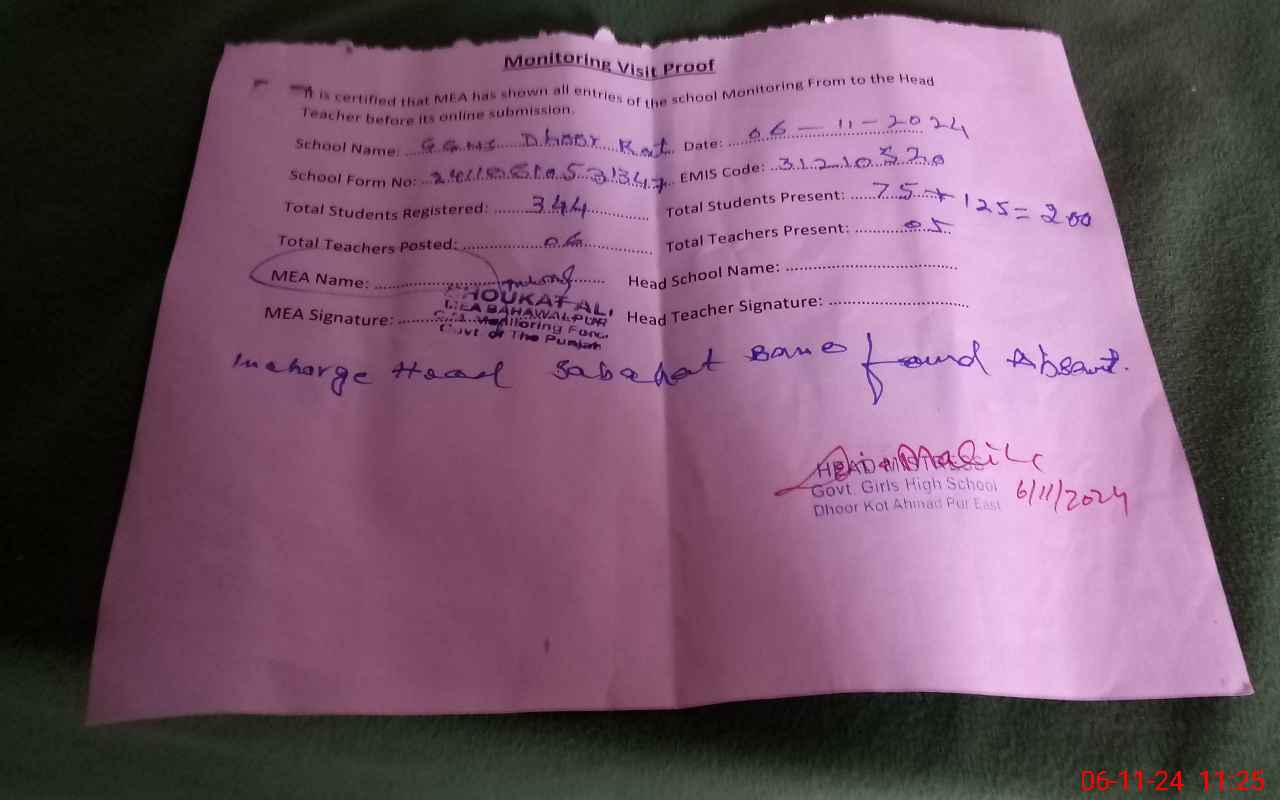 Monitoring Visit Proof
It is certified that MEA has shown all entries of the school Monitoring From to the Head
Teacher before its online submission.
School Name: GGHS Dhoor Kot Date: 06-11-2024
School Form No: EMIS Code: 31210520
Total Students Registered: 344 Total Students Present: 75+125=200
Total Teachers Posted: 06 Total Teachers Present: 05
MEA Name: Head School Name:
MEA Signature: Head Teacher Signature:
SHOUKAT ALI
MEA BAHAWALPUR
Monitoring Force
Govt of The Punjab
Incharge Head Sabahat Bano found Absent.
HEAD MISTRESS
Govt. Girls High School
Dhoor Kot Ahmad Pur East
6/11/2024
06-11-24 11:25